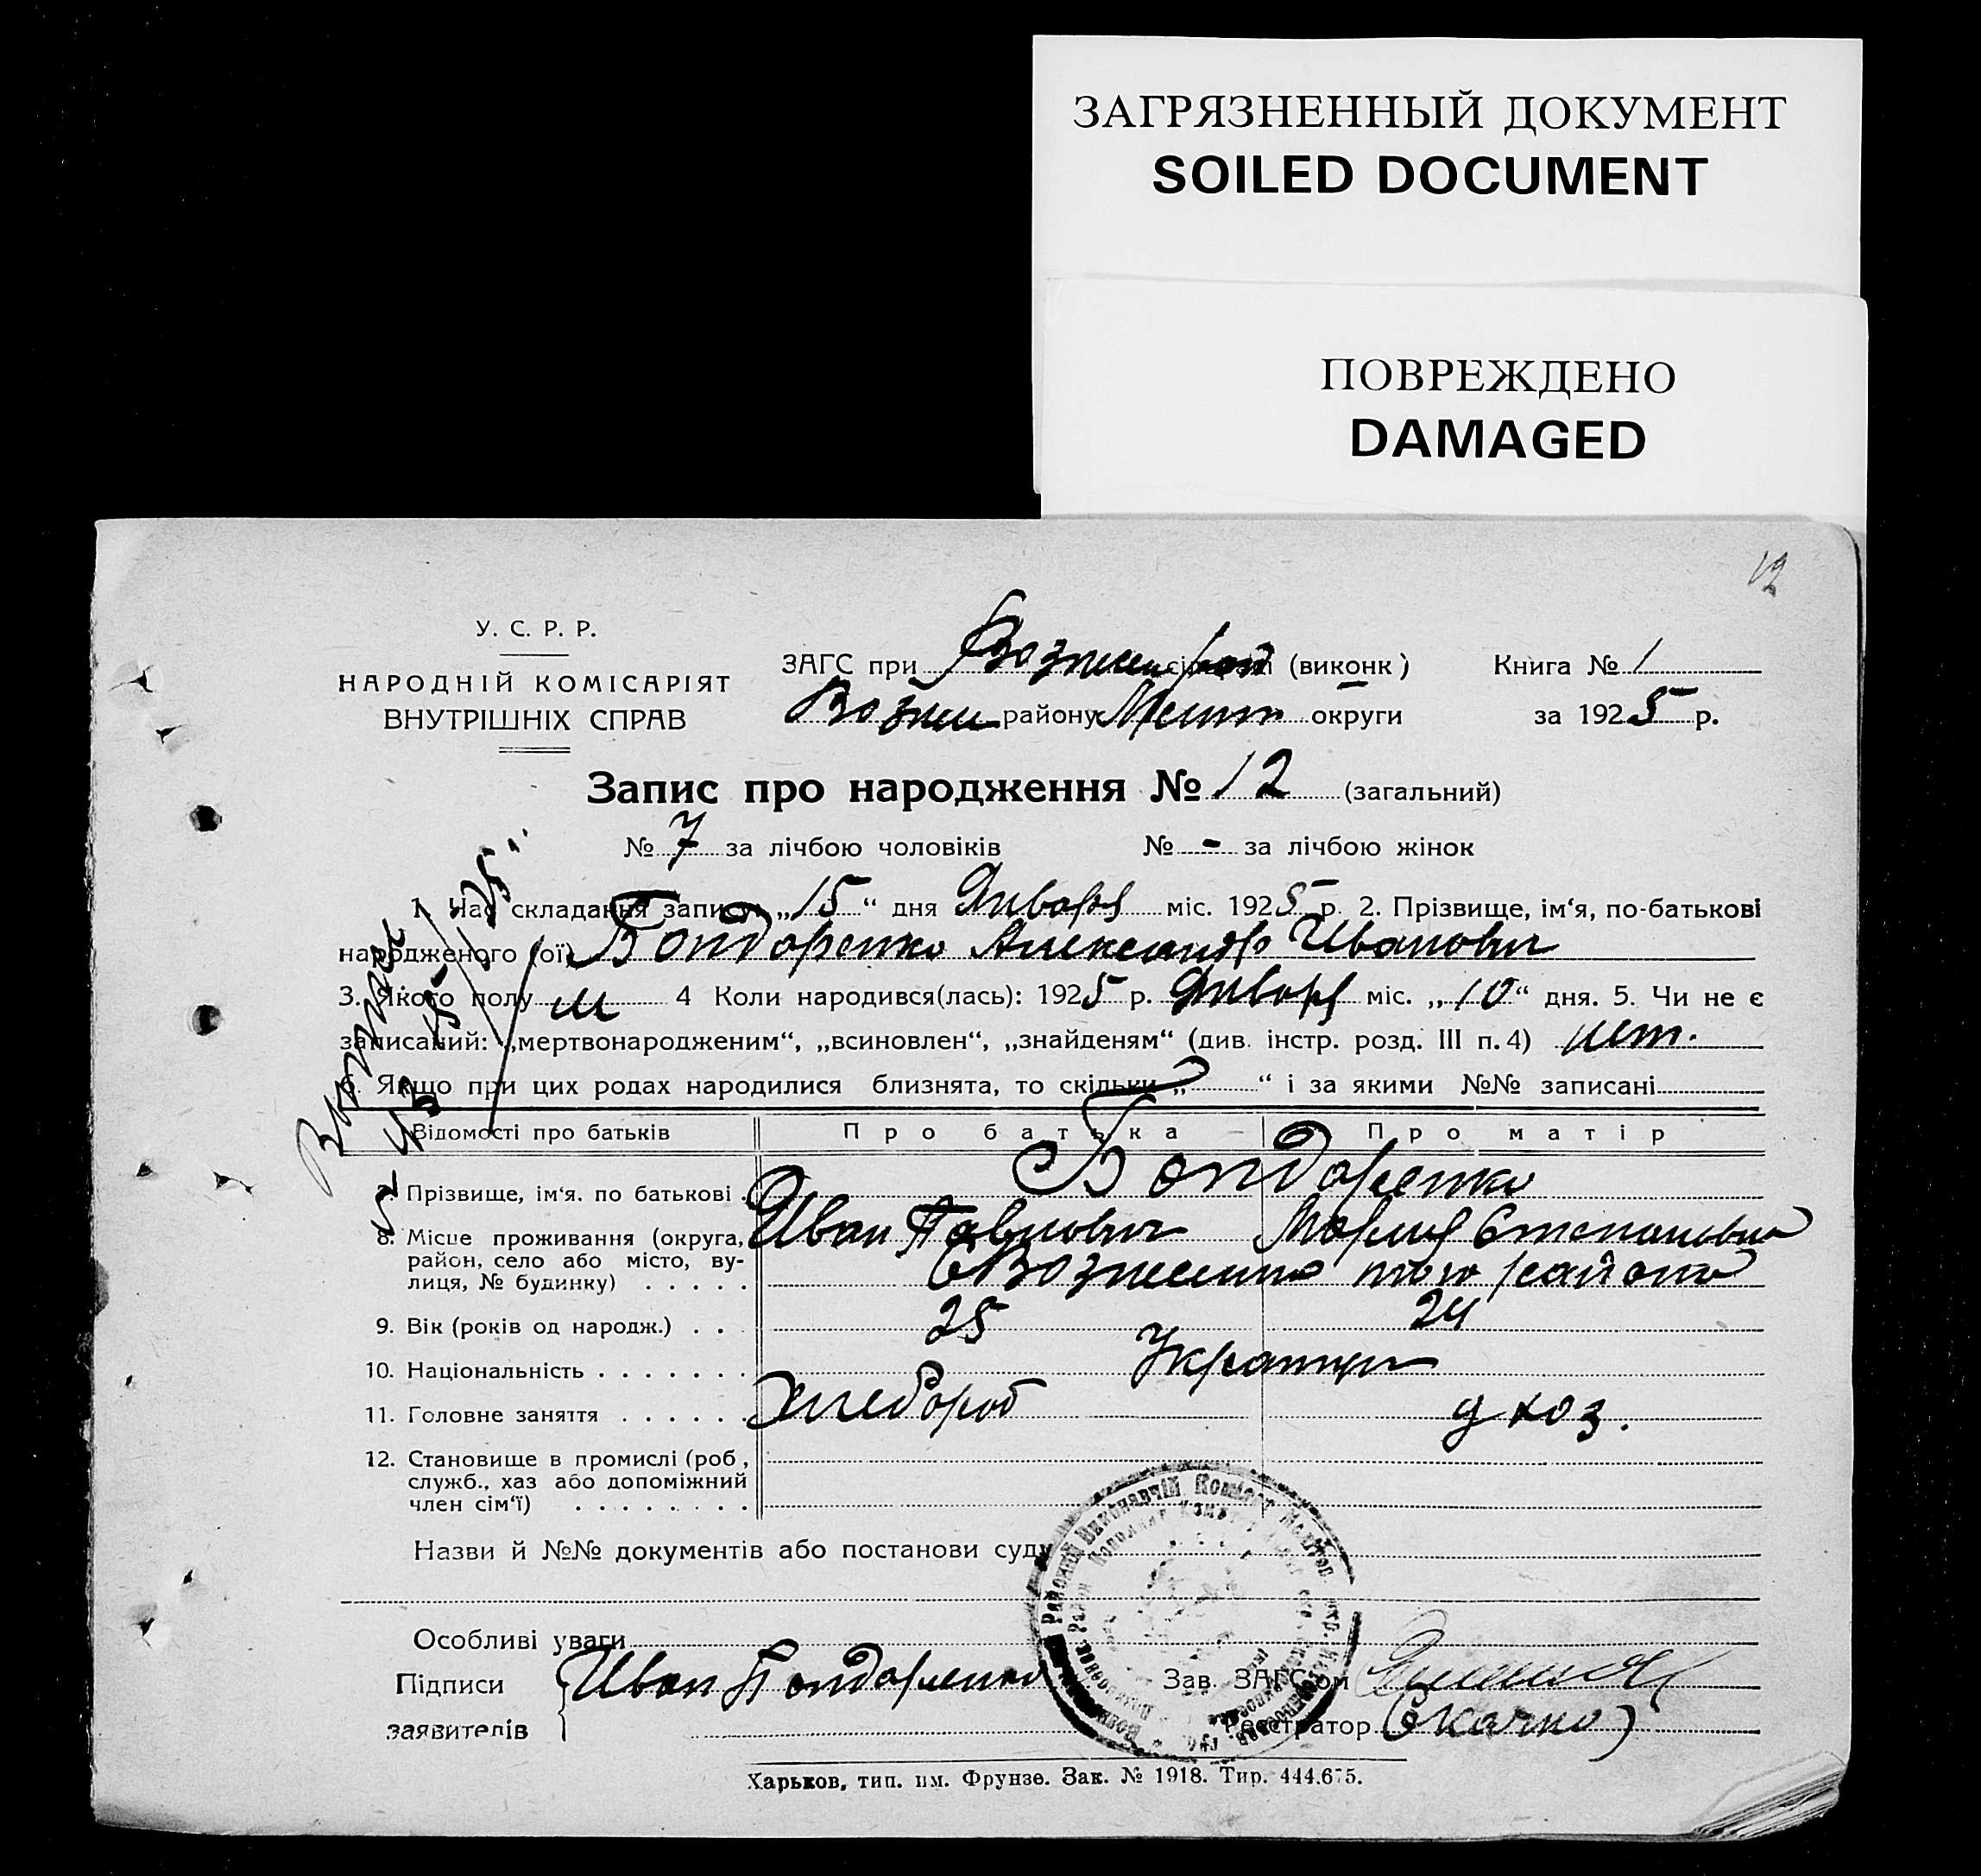 ЗАГРЯЗНЕННЫЙ ДОКУМЕНТ
SOILED DOCUMENT
ПОВРЕЖДЕНО
DAMAGED
12
У. С. Р. Р.
НАРОДНІЙ КОМІСАРІЯТ
ВНУТРІШНІХ СПРАВ
ЗАГС при (виконк) Книга № 1
Возн району Мелит округи за 1925 р.
Запис про народження № 12 (загальний)
№ 7 за лічбою чоловіків № - за лічбою жінок
1. Час складання запису „15“ дня Января міс. 1925 р. 2. Прізвище, ім‘я, по-батькові
народженого (ої) Бондаренко Александр Иванович
3. Якого полу м 4 Коли народився(лась): 1925 р. Января міс. „10“ дня. 5. Чи не є
записаний: „мертвонародженим“, „всиновлен“, „знайденям“ (див. інстр. розд. III п. 4) нет.
6. Якщо при цих родах народилися близнята, то скільки „ “ і за якими №№ записані
Відомості про батьків Про батька Про матір
Бондаренко
7. Прізвище, ім‘я. по батькові
Иван Павлович Мария Степановна
8. Місце проживання (округа,
район, село або місто, ву-
лиця, № будинку)
9. Вік (років од народж.) 25 24
10. Національність
11. Головне заняття Хлебороб д хоз.
12. Становище в промислі (роб,
служб., хаз або допоміжний
член сім‘ї)
Назви й №№ документів або постанови суду
Особливі уваги
Підписи
заявителів
Иван Бондаренко
Зав. ЗАГС‘ом
Реєстратор
Харьков, тип. им. Фрунзе. Зак. № 1918. Тир. 444.675.